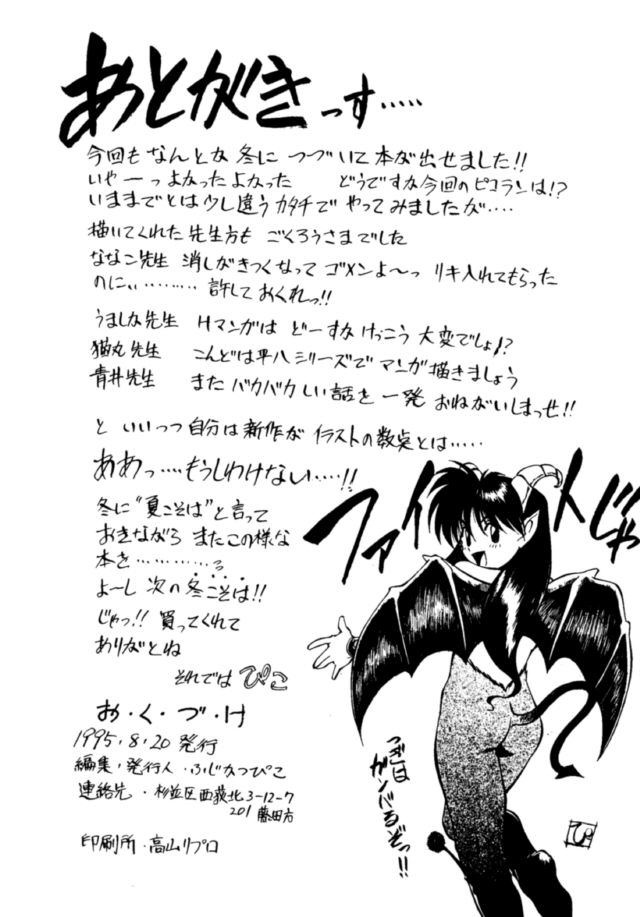 あとがきっす……
今回もなんとか冬につづいて本が出せました!!
いやーっよかったよかった　どうですか今回のピコランは!?
いままでとは少し違うカタチでやってみましたが……
描いてくれた先生方もごくろうさまでした
ななこ先生　消しがきつくなってゴメンよ〜っ　リキ入れてもらった
のにぃ………許しておくれっ!!
うましな先生　Hマンガはどーすかけっこう大変でしょ!?
猫丸先生　こんどは平八シリーズでマンガ描きましょう
青井先生　またバカバカしい話を一発おねがいしまっせ!!
といいつつ自分は新作がイラストの数点とは……
ああっ……もうしわけない……!!
冬に“夏こそは”と言って
おきながらまたこの様な
本を…………っ
よーし次の冬こそは!!
じゃっ!!買ってくれて
ありがとね
それではぴこ
ファイトじゃ
つぎは
ガンバるぞっ!!
ぴ
お・く・づ・け
1995.8.20発行
編集・発行人・ふじなつぴこ
連絡先・杉並区西荻北3-12-7
201 藤田方
印刷所・高山リプロ